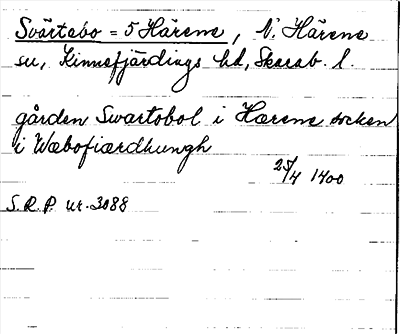 Svärtabo = 5 Härene, N. Härene
su, Kinnefjärdings hd, Skarab. l.
gården Swartobol i Hærene socken
i Wæbofiærdhungh
25/4 1400
S.R.P. nr. 3088